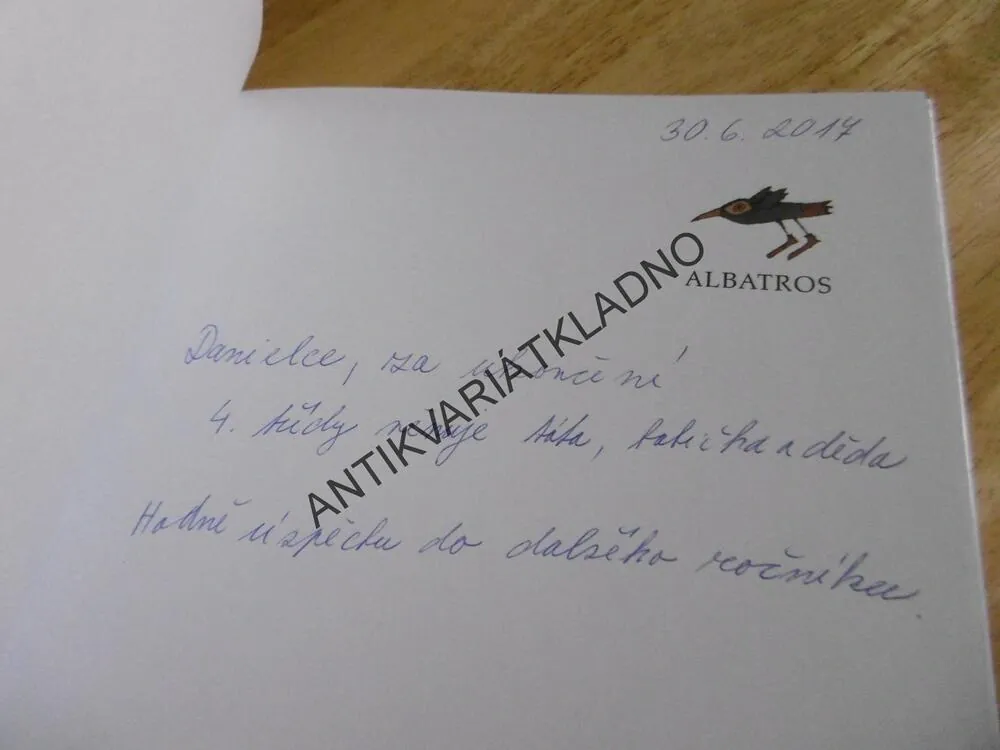 30.6.2017
ALBATROS
ANTIKVARIÁTKLADNO
Danielce, za ukončení
4. třídy věnuje táta, babička a děda
Hodně úspěchu do dalšího ročníku.